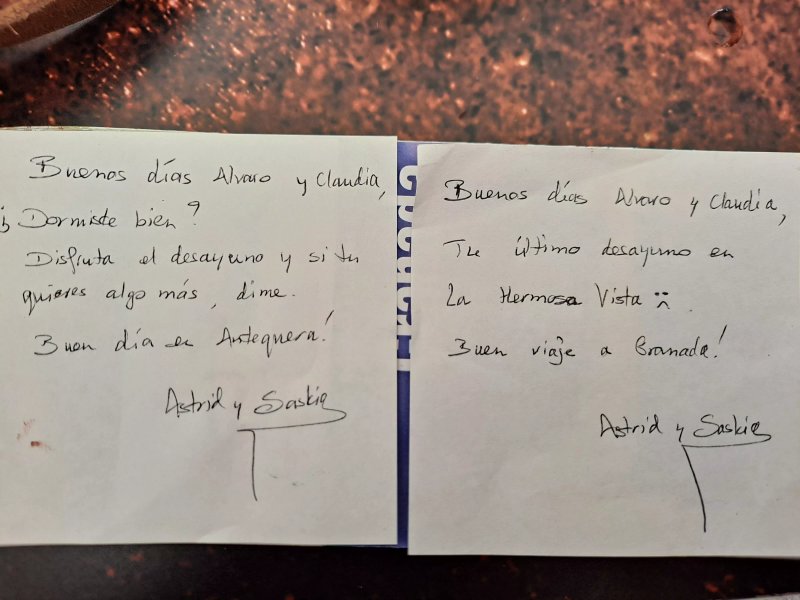 Buenos días Alvaro y Claudia,
¿Dormiste bien?
Disfruta el desayuno y si tu
quieres algo más, dime.
Buen día en Antequera!
Astrid y Saskia
Buenos días Alvaro y Claudia,
Tu último desayuno en
La Hermosa Vista :(
Buen viaje a Granada!
Astrid y Saskia